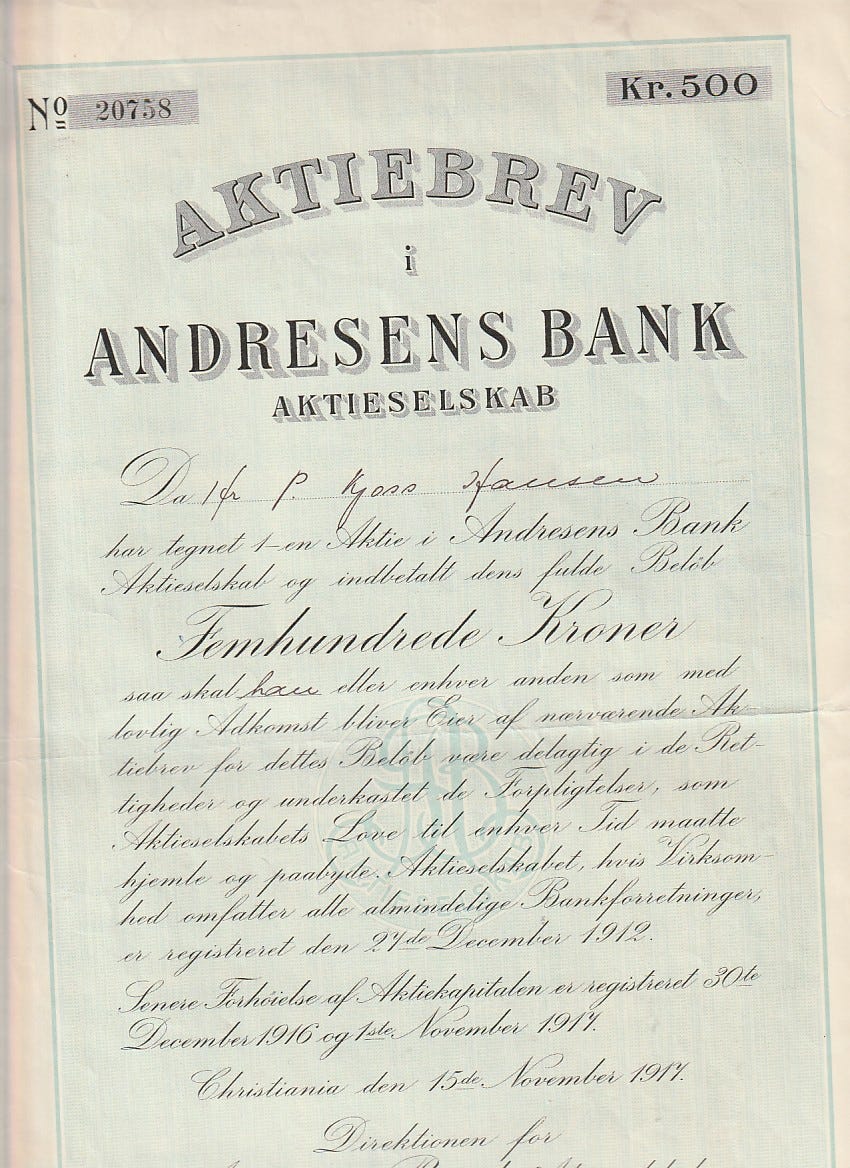 No 20758
Kr. 500
AKTIEBREV
i
ANDRESENS BANK
AKTIESELSKAB
Da Hr P. Kjoss Hansen
har tegnet 1-en Aktie i Andresens Bank
Aktieselskab og indbetalt dens fulde Beløb
Femhundrede Kroner
saa skal han eller enhver anden som med
lovlig Adkomst bliver Eier af nærværende Ak-
tiebrev for dettes Beløb være delagtig i de Ret-
tigheder og underkastet de Forpligtelser, som
Aktieselskabets Love til enhver Tid maatte
hjemle og paabyde. Aktieselskabet, hvis Virksom-
hed omfatter alle almindelige Bankforretninger,
er registreret den 27de December 1912.
Senere Forhøielse af Aktiekapitalen er registreret 30te
December 1916 og 1ste November 1917.
Christiania den 15de November 1917.
Direktionen for